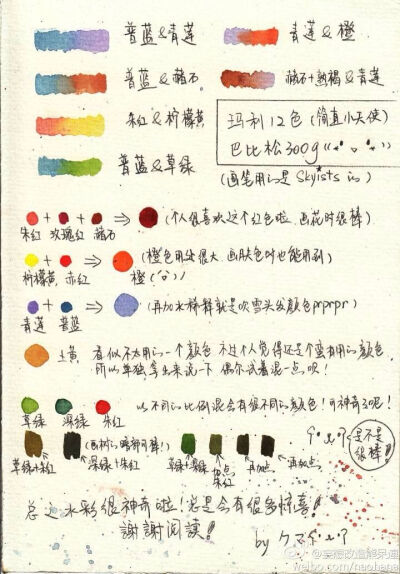 普蓝&青莲
青莲&橙
普蓝&赭石
赭石+熟褐&青莲
朱红&柠檬黄
玛利12色(简直小天使)
巴比松300g
普蓝&草绿
(画笔用的是Skyists的)
(个人很喜欢这个红色啦 画花时很棒)
朱红 玫瑰红 赭石
(橙色用处很大 画肤色时也能用到)
柠檬黄 赤红 橙
(再加水稀释就是吹雪头发颜色prprpr)
青莲 普蓝
土黄 看似不太用的一个颜色 不过个人觉得还是个蛮有用的颜色
所以单独拿出来说一下 偶尔试着混一点呗!
以不同的比例混会有很不同的颜色!可神奇了呢!
草绿 深绿 朱红
是不是很棒!
(画树的暗部可棒!)
草绿+朱红 深绿+朱红 草绿+深绿 加点朱红 再加点 再加点
总之水彩很神奇啦!总是会有很多惊喜!
謝謝阅读!
by クマ
weibo.com/naohana